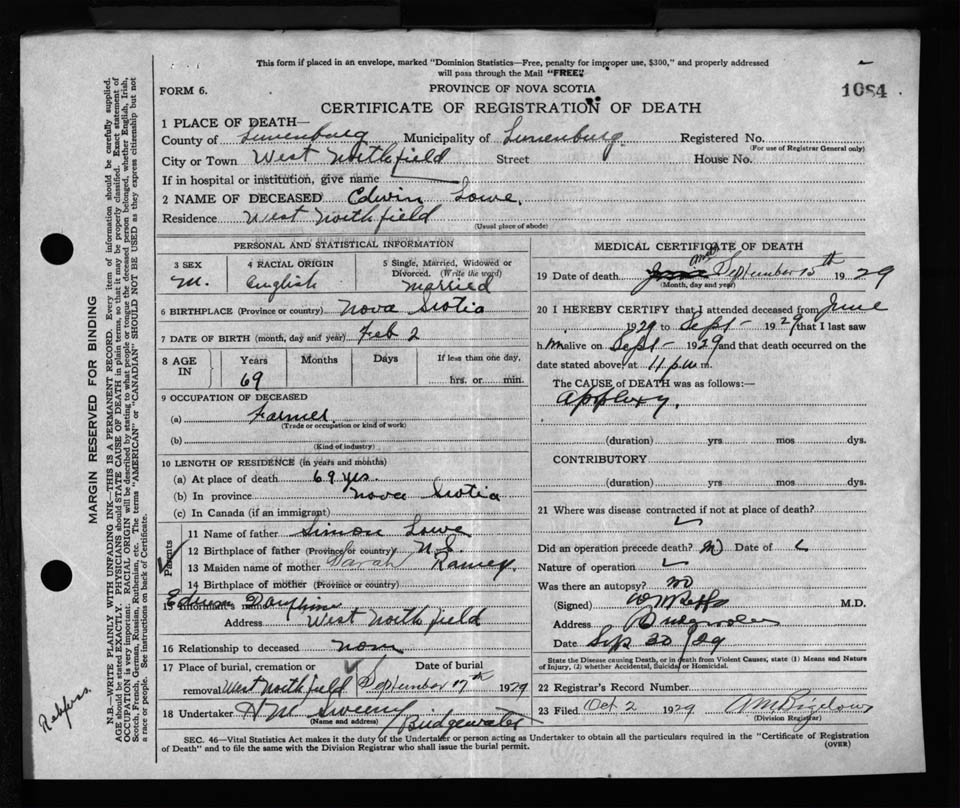 This form if placed in an envelope, marked "Dominion Statistics—Free, penalty for improper use, $300," and properly addressed
will pass through the Mail "FREE."
FORM 6.
PROVINCE OF NOVA SCOTIA
1084
CERTIFICATE OF REGISTRATION OF DEATH
1 PLACE OF DEATH—
County of Lunenburg Municipality of Lunenburg Registered No.
(For use of Registrar General only)
City or Town West Northfield Street House No.
If in hospital or institution, give name
2 NAME OF DECEASED Edwin Lowe.
Residence West Northfield
(Usual place of abode)
PERSONAL AND STATISTICAL INFORMATION
3 SEX
M.
4 RACIAL ORIGIN
English
5 Single, Married, Widowed or
Divorced. (Write the word)
Married
6 BIRTHPLACE (Province or country) Nova Scotia
7 DATE OF BIRTH (month, day and year) Feb 2
8 AGE
IN
Years
69
Months
Days
If less than one day,
hrs. or min.
9 OCCUPATION OF DECEASED
(a) Farmer
(Trade or occupation or kind of work)
(b)
(Kind of industry)
10 LENGTH OF RESIDENCE (in years and months)
(a) At place of death 69 yrs.
(b) In province Nova Scotia
(c) In Canada (if an immigrant)
Parents
11 Name of father Simon Lowe
12 Birthplace of father (Province or country) N.S.
13 Maiden name of mother Sarah Ramey
14 Birthplace of mother (Province or country)
15 Informant's name
Address West Northfield
16 Relationship to deceased none
17 Place of burial, cremation or
removal West Northfield
Date of burial
September 17th 1929
18 Undertaker H M Sweeny Bridgewater
(Name and address)
MEDICAL CERTIFICATE OF DEATH
19 Date of death September 15th 1929
(Month, day and year)
20 I HEREBY CERTIFY that I attended deceased from June
1929 to Sept - 1929 that I last saw
h im alive on Sept - 1929 and that death occurred on the
date stated above, at 11 p.m. m.
The CAUSE of DEATH was as follows:—
(duration) yrs mos dys.
CONTRIBUTORY
(duration) yrs mos dys.
21 Where was disease contracted if not at place of death?
Did an operation precede death? No Date of
Nature of operation
Was there an autopsy? No
(Signed) M.D.
Address Bridgewater
Date Sep 30/29
State the Disease causing Death, or in death from Violent Causes, state (1) Means and Nature
of Injury, (2) whether Accidental, Suicidal or Homicidal.
22 Registrar's Record Number
23 Filed Oct 2 1929 A M Bigelow
(Division Registrar)
SEC. 46—Vital Statistics Act makes it the duty of the Undertaker or person acting as Undertaker to obtain all the particulars required in the "Certificate of Registration
of Death" and to file the same with the Division Registrar who shall issue the burial permit.
(OVER)
MARGIN RESERVED FOR BINDING
N.B.—WRITE PLAINLY WITH UNFADING INK—THIS IS A PERMANENT RECORD. Every item of information should be carefully supplied.
AGE should be stated EXACTLY. PHYSICIANS should STATE CAUSE OF DEATH in plain terms, so that it may be properly classified. Exact statement of
OCCUPATION is very important. RACIAL ORIGIN will be described by stating to what people or tongue the deceased person belonged, whether English, Irish,
Scotch, French, German, Russian, Ruthenian, etc. The terms "AMERICAN" or "CANADIAN" SHOULD NOT BE USED as they express citizenship but not
a race or people. See instructions on back of Certificate.